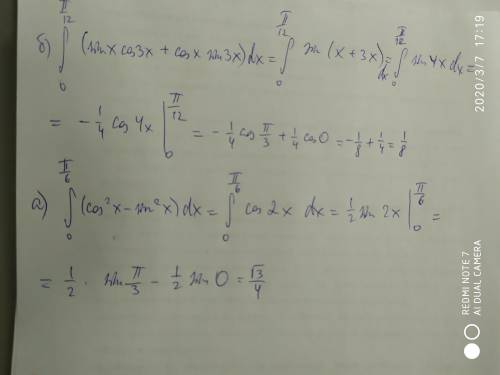 б) ∫₀^(π/12) (sin x cos 3x + cos x sin 3x) dx = ∫₀^(π/12) sin (x + 3x) dx = ∫₀^(π/12) sin 4x dx =
= - 1/4 cos 4x |₀^(π/12) = - 1/4 cos π/3 + 1/4 cos 0 = - 1/8 + 1/4 = 1/8
а) ∫₀^(π/6) (cos²x - sin²x) dx = ∫₀^(π/6) cos 2x dx = 1/2 sin 2x |₀^(π/6) =
= 1/2 · sin π/3 - 1/2 sin 0 = √3/4
2020/3/7 17:19
REDMI NOTE 7
AI DUAL CAMERA